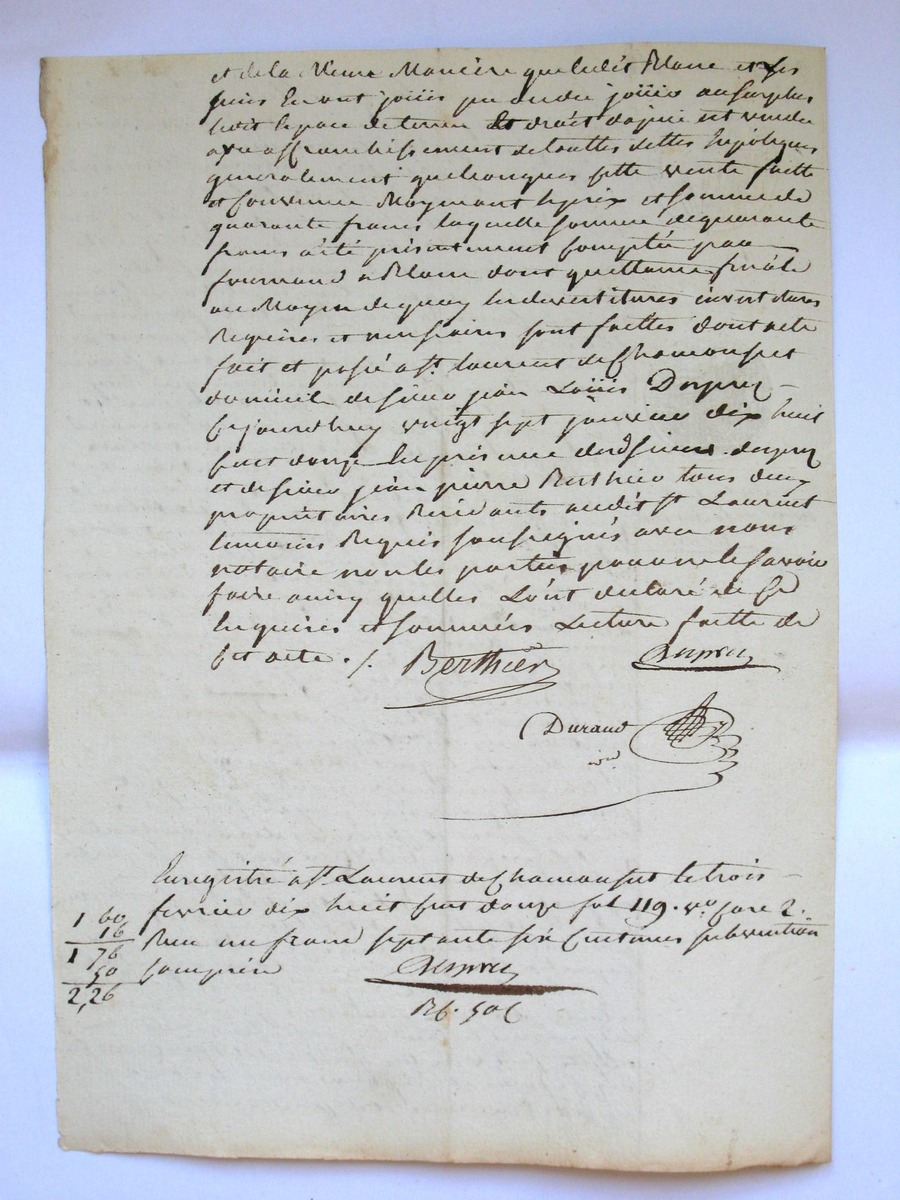 et de la Meme Maniere que ledit Blanc et les
siens en ont joüis pu ou du joüir au surplus
ledit espace de terrein et droit d'apuis est vendu
avec affranchissement de touttes dettes hypoteques
generalement quelconques cette vente faitte
et convenue Moyenant le prix et somme de
quarante francs laquelle somme de quarante
francs a été presentement comptée par
fournand a Blanc dont quittance finale
au Moyen de quoy les devestitures investitures
Requises et necessaires sont faittes dont acte
fait et passé a St. Laurent de Chamousset
domicile de sieur jean Loüis Duprez
ce jourdhuy vingt sept janvier dix huit
cent douze en presence dudt sieur duprez
et de sieur jean pierre Berthier tous deux
proprietaires Residants audit St Laurent
temoins Requis soussignés avec nous
notaire non les parties pour ne le savoir
faire ainsy quelles L'ont declaré de ce
enquises et sommées Lecture faitte de
cet acte ./. Berthier
Durand
Enregistré a St. Laurent de Chamousset le trois
fevrier dix huit cent douze fol 119. vo. case 2.
Recu un franc septante six Centimes subvention
comprise
1 60
16
1 76
50
2,26
Rb. 50 C